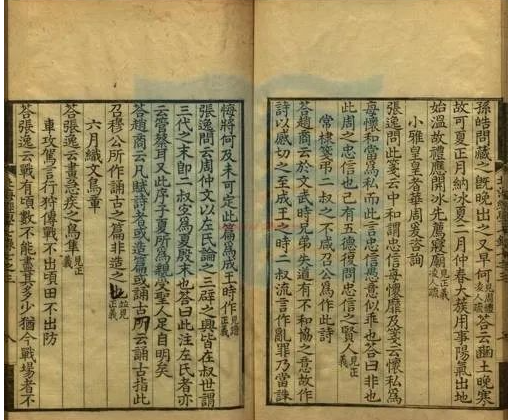 孫皓問藏之既晚出之又早何見周禮凌人疏答云豳土晚寒
故可夏正月納冰夏二月仲春大蔟用事陽氣出地
始溫故禮應開冰先薦寢廟見正義凌人疏
小雅皇皇者華周爰咨詢
張逸問此箋云中和謂忠信每懷靡及箋云懷私為
每懷和當為私而此言忠信愚意似非也答曰非也
此周之忠信也己有五德復問忠信之賢人見正義
常棣箋弔二叔之不咸召公為作此詩
答趙商云於文武時兄弟失道有不和協之意故作
詩以感切之至成王之時二叔流言作亂罪乃當誅
悔將何及未可定此篇為成王時作見譜正義
張逸問云周仲文以左氏論之三辟之興皆在叔世謂
三代之末即二叔宜為夏殷末也答曰此注左氏者亦
云管蔡耳又此序子夏所為親受聖人足自明矣
答趙商云凡賦詩者或造篇或誦古所云誦古指此
召穆公所作誦古之篇非造之也並見正義
六月織文鳥章
答張逸云畫急疾之鳥隼見正義
車攻駕言行狩傳戰不出頃田不出防
答張逸云戰有頃數不能盡其多少猶今戰場者不